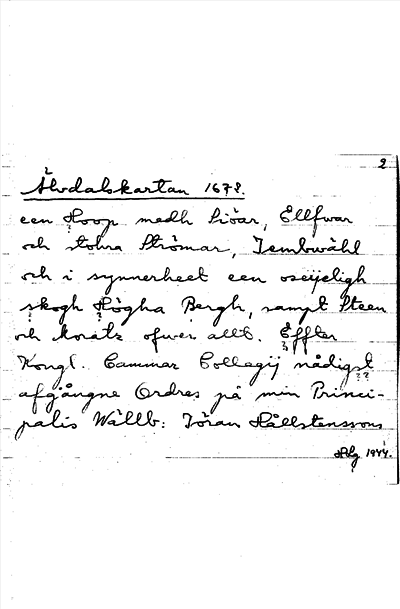 2
Älvdalskartan 1678.
een Hoop medh Siöar, Ellfwar
och stohra Strömar, Jembwähl
och i synnerheet een oseijeligh
skogh Högha Bergh, sampt Steen
och Moratz öfwer allt. Effter
Kongl. Cammar Collegij nådigst
afgångne Ordres på min Princi-
palis Wällb: Jöran Hållstenssons
1944.